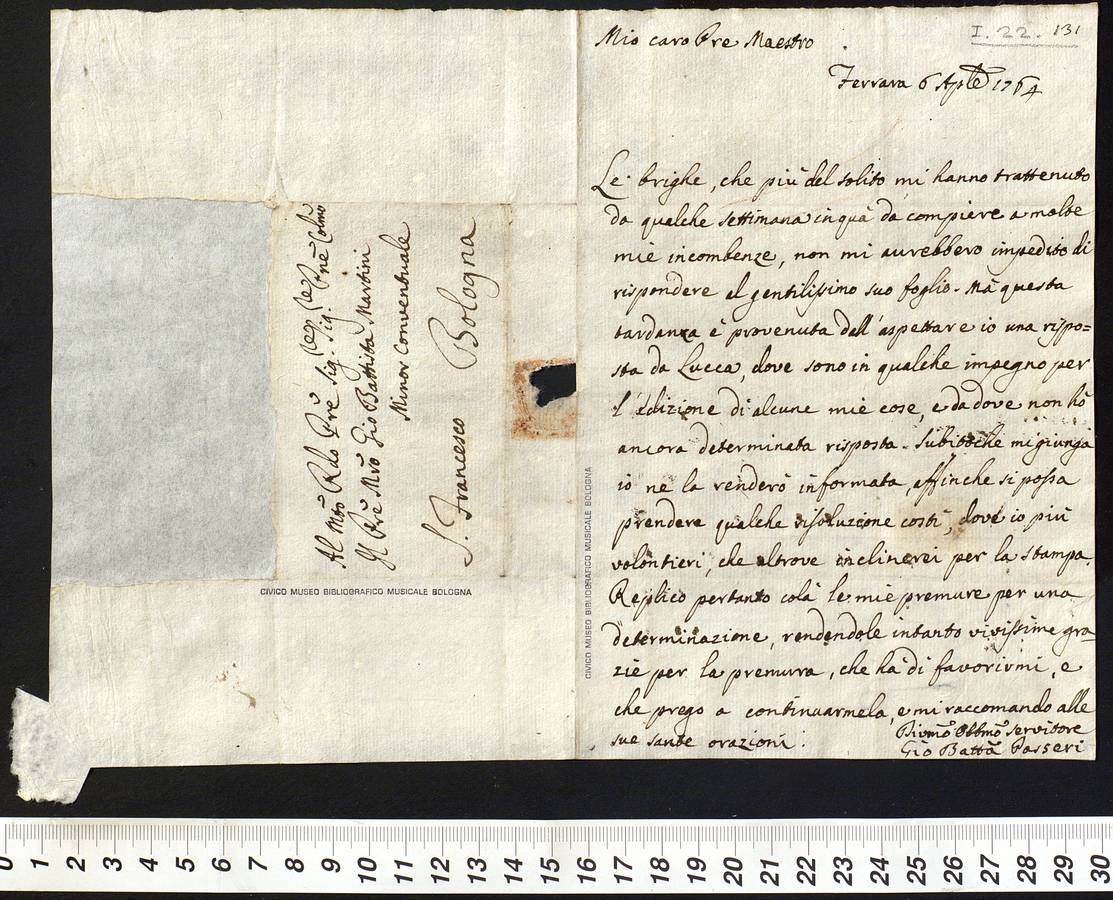 Mio caro Pre Maestro
I. 22. 131
Ferrara 6 Aple 1764
Le brighe, che più del solito mi hanno trattenuto
da qualche settimana in quà da compiere a molte
mie incombenze, non mi aurebbero impedito di
rispondere al gentilissimo suo foglio. Mà questa
tardanza è provenuta dall'aspettare io una rispo=
sta da Lucca, dove sono in qualche impegno per
l'Edizione di alcune mie cose, e da dove non hò
ancora determinata risposta. Subitoche mi giunga
io ne la renderò informata, affinche si possa
prendere qualche risoluzione costì, dove io più
volontieri, che altrove inclinerei per la stampa.
Replico pertanto colà le mie premure per una
determinazione, rendendole intanto vivissime gra
zie per la premurra, che hà di favorirmi, e
che prego a continuarmela, e mi raccomando alle
sue sante orazioni.
Divmo Obbmo servitore
Gio Batta Passeri
Al Mto Rdo Pre Sig. Sig. Pne Colmo
Il Pre Mro Gio Battista Martini
Minor Conventuale
S. Francesco Bologna
CIVICO MUSEO BIBLIOGRAFICO MUSICALE BOLOGNA
CIVICO MUSEO BIBLIOGRAFICO MUSICALE BOLOGNA
0 1 2 3 4 5 6 7 8 9 10 11 12 13 14 15 16 17 18 19 20 21 22 23 24 25 26 27 28 29 30